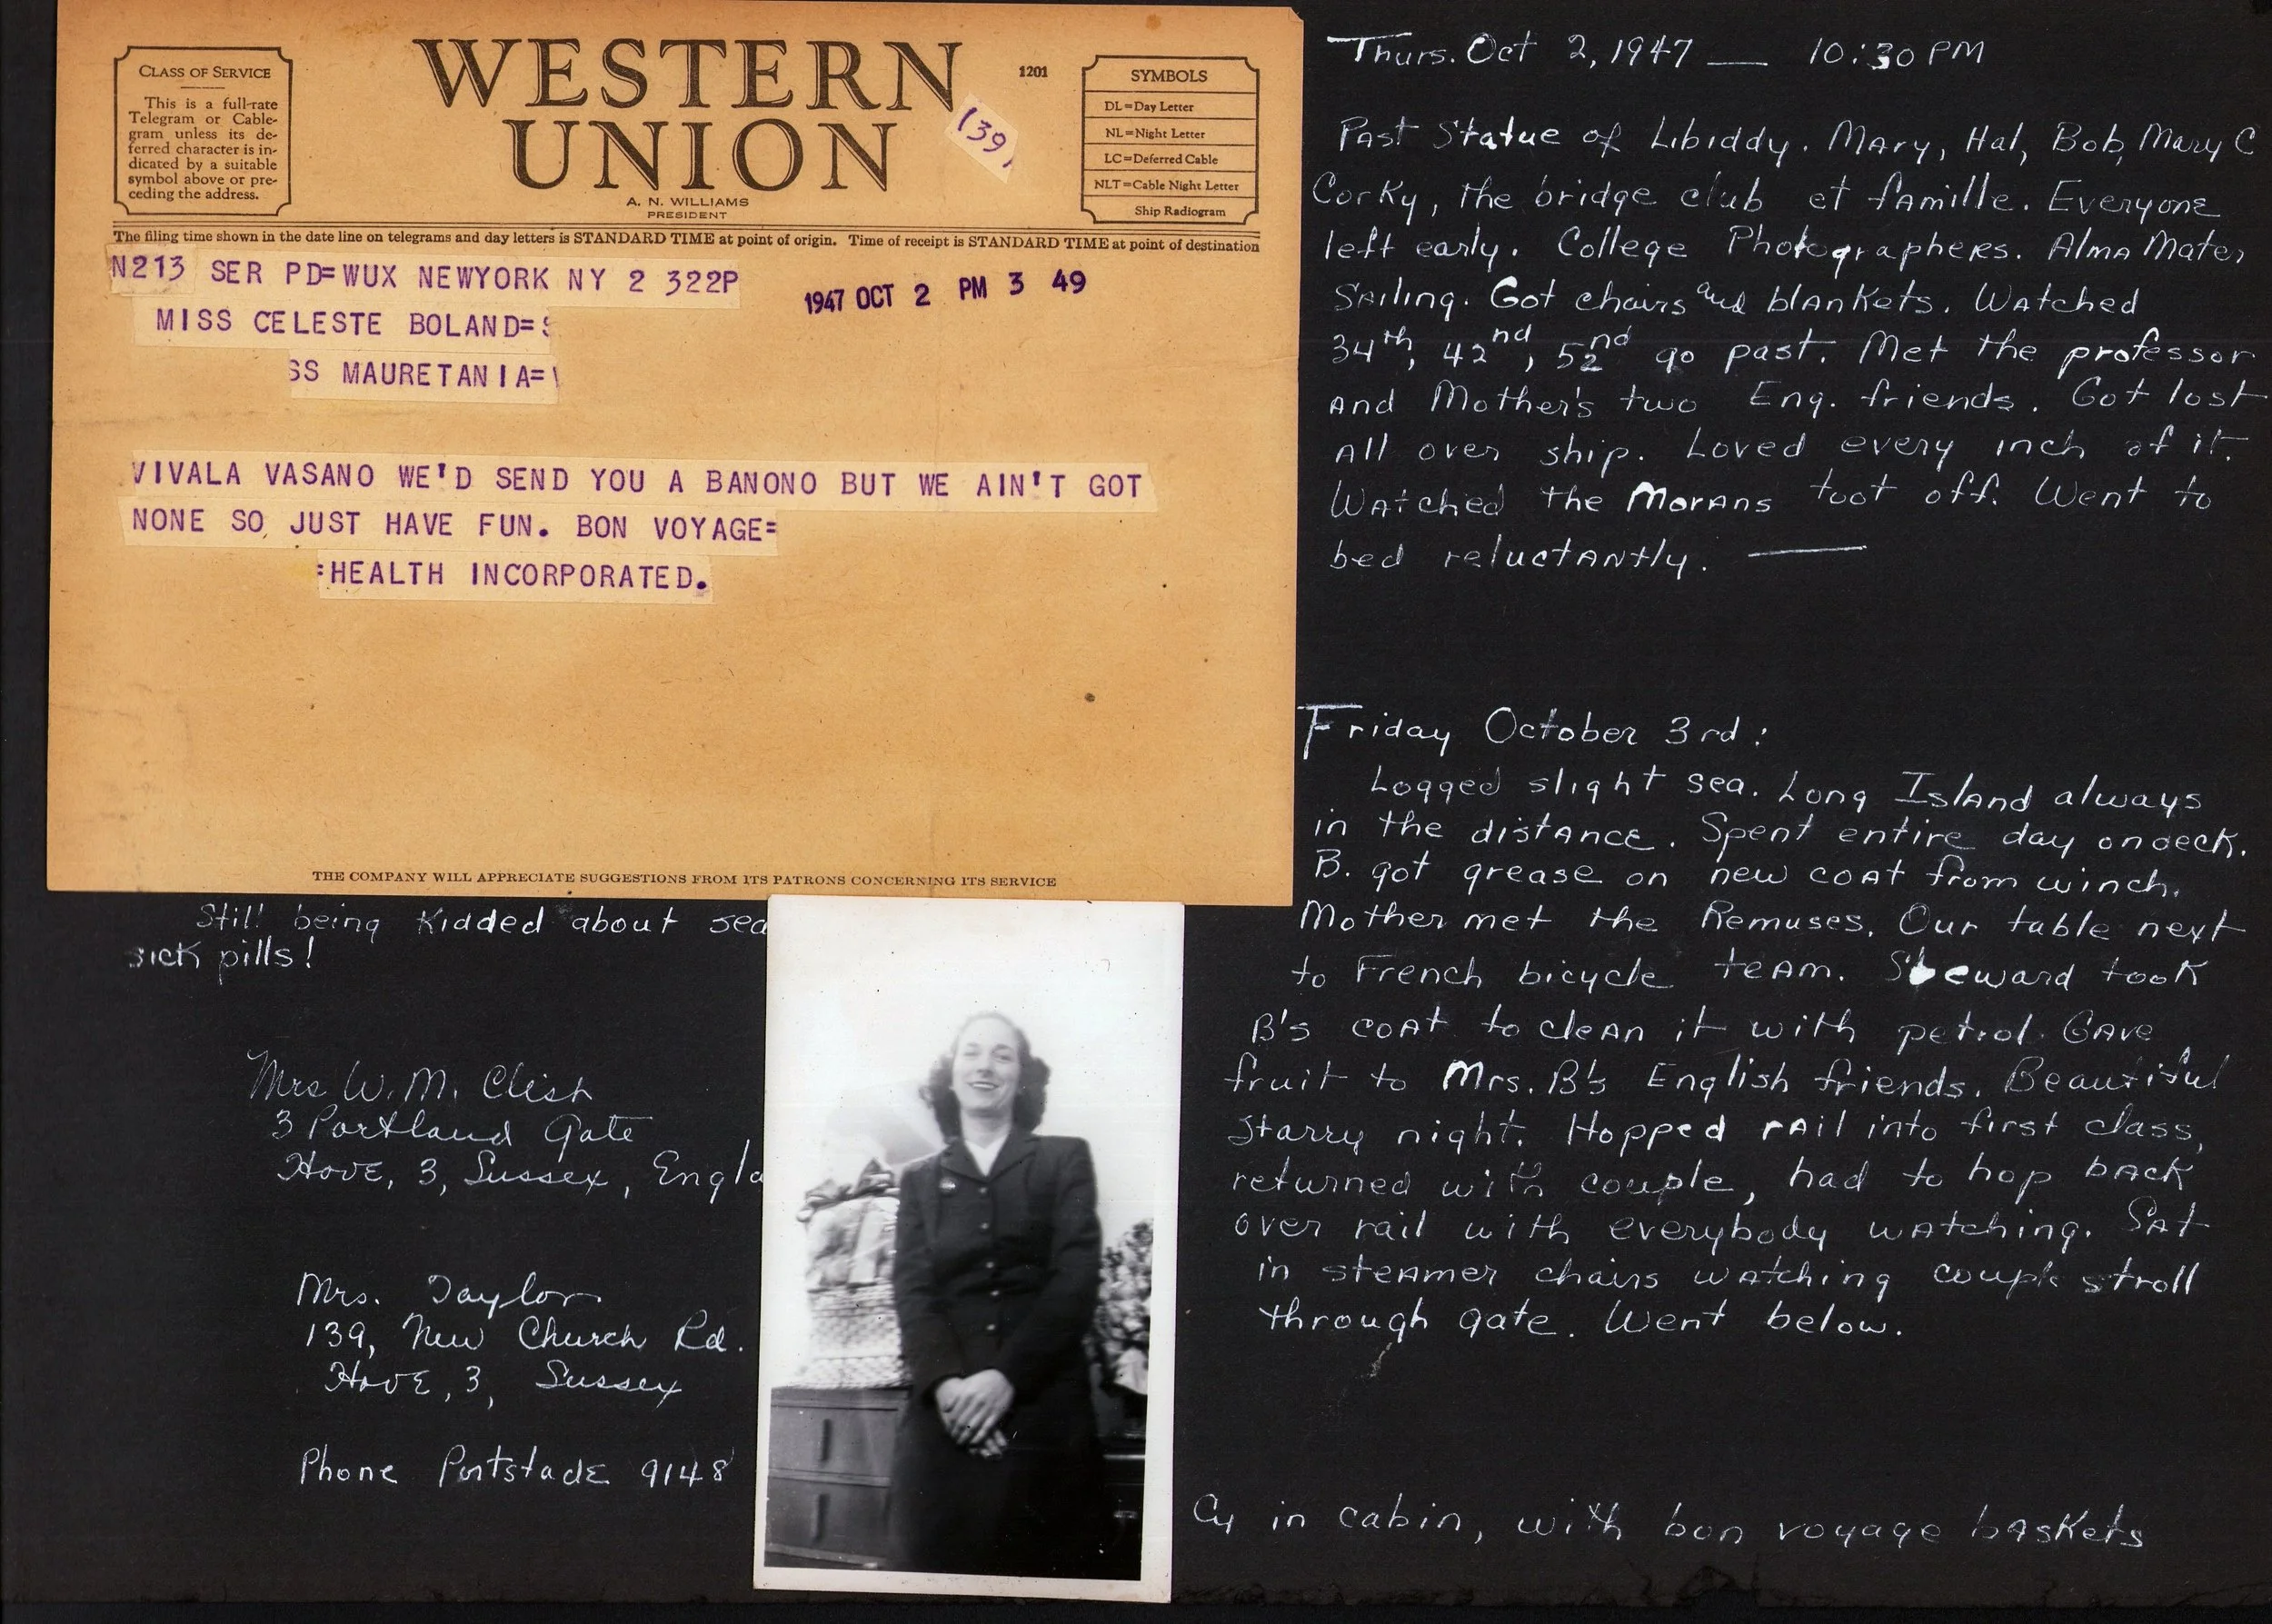 CLASS OF SERVICE
This is a full-rate
Telegram or Cable-
gram unless its de-
ferred character is in-
dicated by a suitable
symbol above or pre-
ceding the address.
WESTERN
UNION
1201
139
A. N. WILLIAMS
PRESIDENT
SYMBOLS
DL=Day Letter
NL=Night Letter
LC=Deferred Cable
NLT=Cable Night Letter
Ship Radiogram
The filing time shown in the date line on telegrams and day letters is STANDARD TIME at point of origin. Time of receipt is STANDARD TIME at point of destination
N213 SER PD=WUX NEWYORK NY 2 322P
1947 OCT 2 PM 3 49
MISS CELESTE BOLAND=
SS MAURETANIA=
VIVALA VASANO WE'D SEND YOU A BANONO BUT WE AIN'T GOT
NONE SO JUST HAVE FUN. BON VOYAGE=
=HEALTH INCORPORATED.
THE COMPANY WILL APPRECIATE SUGGESTIONS FROM ITS PATRONS CONCERNING ITS SERVICE
Still being kidded about sea
sick pills!
Mrs W. M. Clish
3 Portland Gate
Hove, 3, Sussex, Engla
Mrs. Taylor
139, New Church Rd.
Hove, 3, Sussex
Phone Portslade 9148
Thurs. Oct 2, 1947 — 10:30 PM
Past Statue of Libiddy. Mary, Hal, Bob, Mary C
Corky, the bridge club et famille. Everyone
left early. College Photographers. Alma Mater
Sailing. Got chairs and blankets. Watched
34th, 42nd, 52nd go past. Met the professor
and Mother's two Eng. friends. Got lost
all over ship. Loved every inch of it.
Watched the Morans toot off. Went to
bed reluctantly. —
Friday October 3rd:
Logged slight sea. Long Island always
in the distance. Spent entire day on deck.
B. got grease on new coat from winch.
Mother met the Remuses. Our table next
to French bicycle team. Steward took
B's coat to clean it with petrol. Gave
fruit to Mrs. B's English friends. Beautiful
starry night. Hopped rail into first class,
returned with couple, had to hop back
over rail with everybody watching. Sat
in steamer chairs watching couple stroll
through gate. Went below.
Cy in cabin, with bon voyage baskets